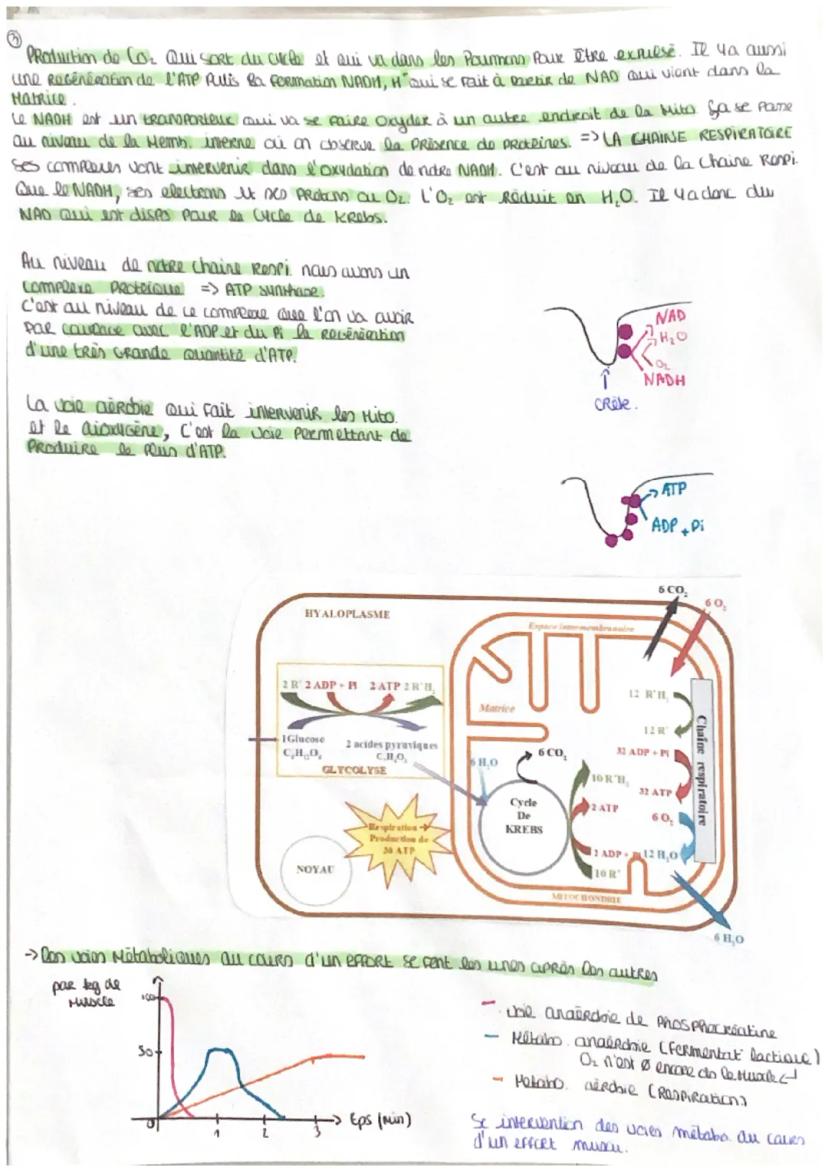 ③
Production de Co₂ qui sort du cycle et qui va dans les Poumons Pour être expulsé. Il y a aussi
une regénération de l'ATP Puis la formation NADH, H⁺ qui se fait à partir de NAD qui vient dans la
Matrice.
Le NADH est un transporteur qui va se faire oxyder à un autre endroit de la Mito. ça se passe
au niveau de la Memb. interne où on observe la présence de protéines. => LA CHAINE RESPIRATOIRE
Ses complexes vont intervenir dans l'oxydation de notre NADH. C'est au niveau de la chaine Respi.
Que le NADH, ses electrons et ses Protons au O₂. L'O₂ est Réduit en H₂O. Il y a donc du
NAD qui est dispo Pour le Cycle de Krebs.
Au niveau de notre chaine Respi. nous avons un
complexe Protéique => ATP synthase.
C'est au niveau de ce complexe que l'on va avoir
par couplage avec l'ADP et du Pi la regénération
d'une très Grande quantité d'ATP.
NAD
H₂O
O₂
NADH
Crête.
La voie aérobie qui fait intervenir les Mito.
et le dioxigène, C'est la voie Permettant de
Produire le Plus d'ATP.
ATP
ADP + Pi
6 CO₂
6 O₂
HYALOPLASME
Espace intermembranaire
2 R' 2 ADP + Pi 2 ATP 2 R'H₂
1 Glucose
C₆H₁₂O₆
2 acides pyruviques
GLYCOLYSE
Matrice
12 R'H₂
12 R'
32 ADP + Pi
32 ATP
6 O₂
12 H₂O
Chaîne respiratoire
6 H₂O
6 CO₂
Cycle
De
KREBS
10 R'H₂
2 ATP
2 ADP + Pi
10 R'
Respiration →
Production de
ATP
NOYAU
MITOCHONDRIE
6 H₂O
→ Les voies Métaboliques au cours d'un effort se font les unes après les autres
par kg de
Muscle
100
50
0
1
2
3
tps (min)
- voie anaérobie de phosphocréatine
- Métabo. anaérobie (fermentat° lactique)
O₂ n'est Ø encore ds le muscle
- Métabo. aérobie (Respiration)
intervention des voies métabo au cours
d'un effort muscu.